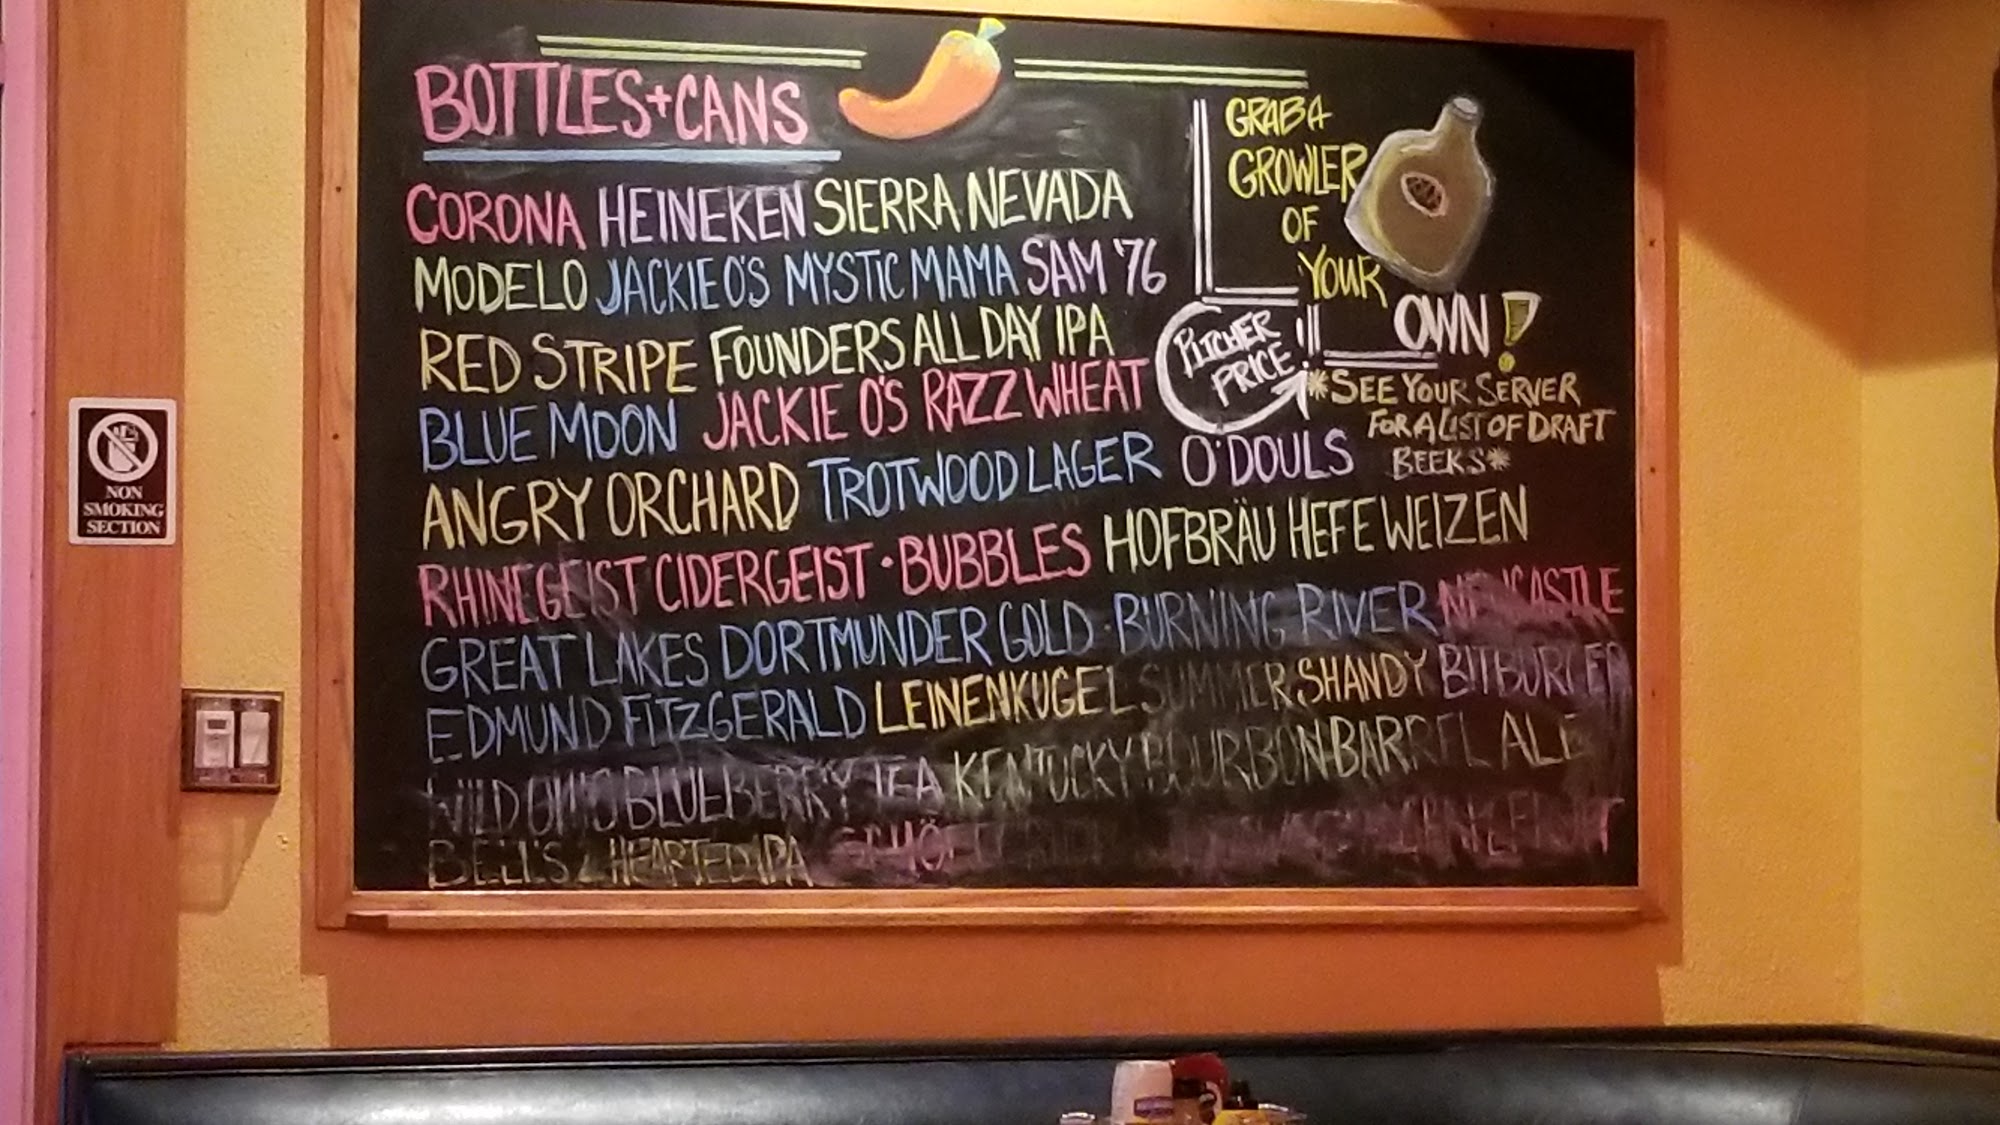 BOTTLES+CANS
CORONA HEINEKEN SIERRA NEVADA
MODELO JACKIE O'S MYSTIC MAMA SAM '76
RED STRIPE FOUNDERS ALL DAY IPA
BLUE MOON JACKIE O'S RAZZ WHEAT
ANGRY ORCHARD TROTWOOD LAGER O'DOULS
RHINEGEIST CIDERGEIST · BUBBLES HOFBRÄU HEFE WEIZEN
GREAT LAKES DORTMUNDER GOLD · BURNING RIVER NEWCASTLE
EDMUND FITZGERALD LEINENKUGEL SUMMER SHANDY BITBURGER
WILD OHIO BLUEBERRY TEA KENTUCKY BOURBON BARREL ALE
BELL'S 2 HEARTED IPA
GRAB A
GROWLER
OF
YOUR
OWN!
PITCHER
PRICE
*SEE YOUR SERVER
FOR A LIST OF DRAFT
BEERS*
NON
SMOKING
SECTION